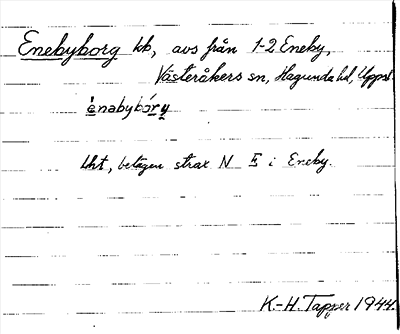 Enebyborg hb, avs från 1-2 Eneby,
Västeråkers sn, Hagunda hd, Uppsl.
ènabybór̥y
Lht, belägen strax N E i Eneby.
K.-H. Tapper 1944.